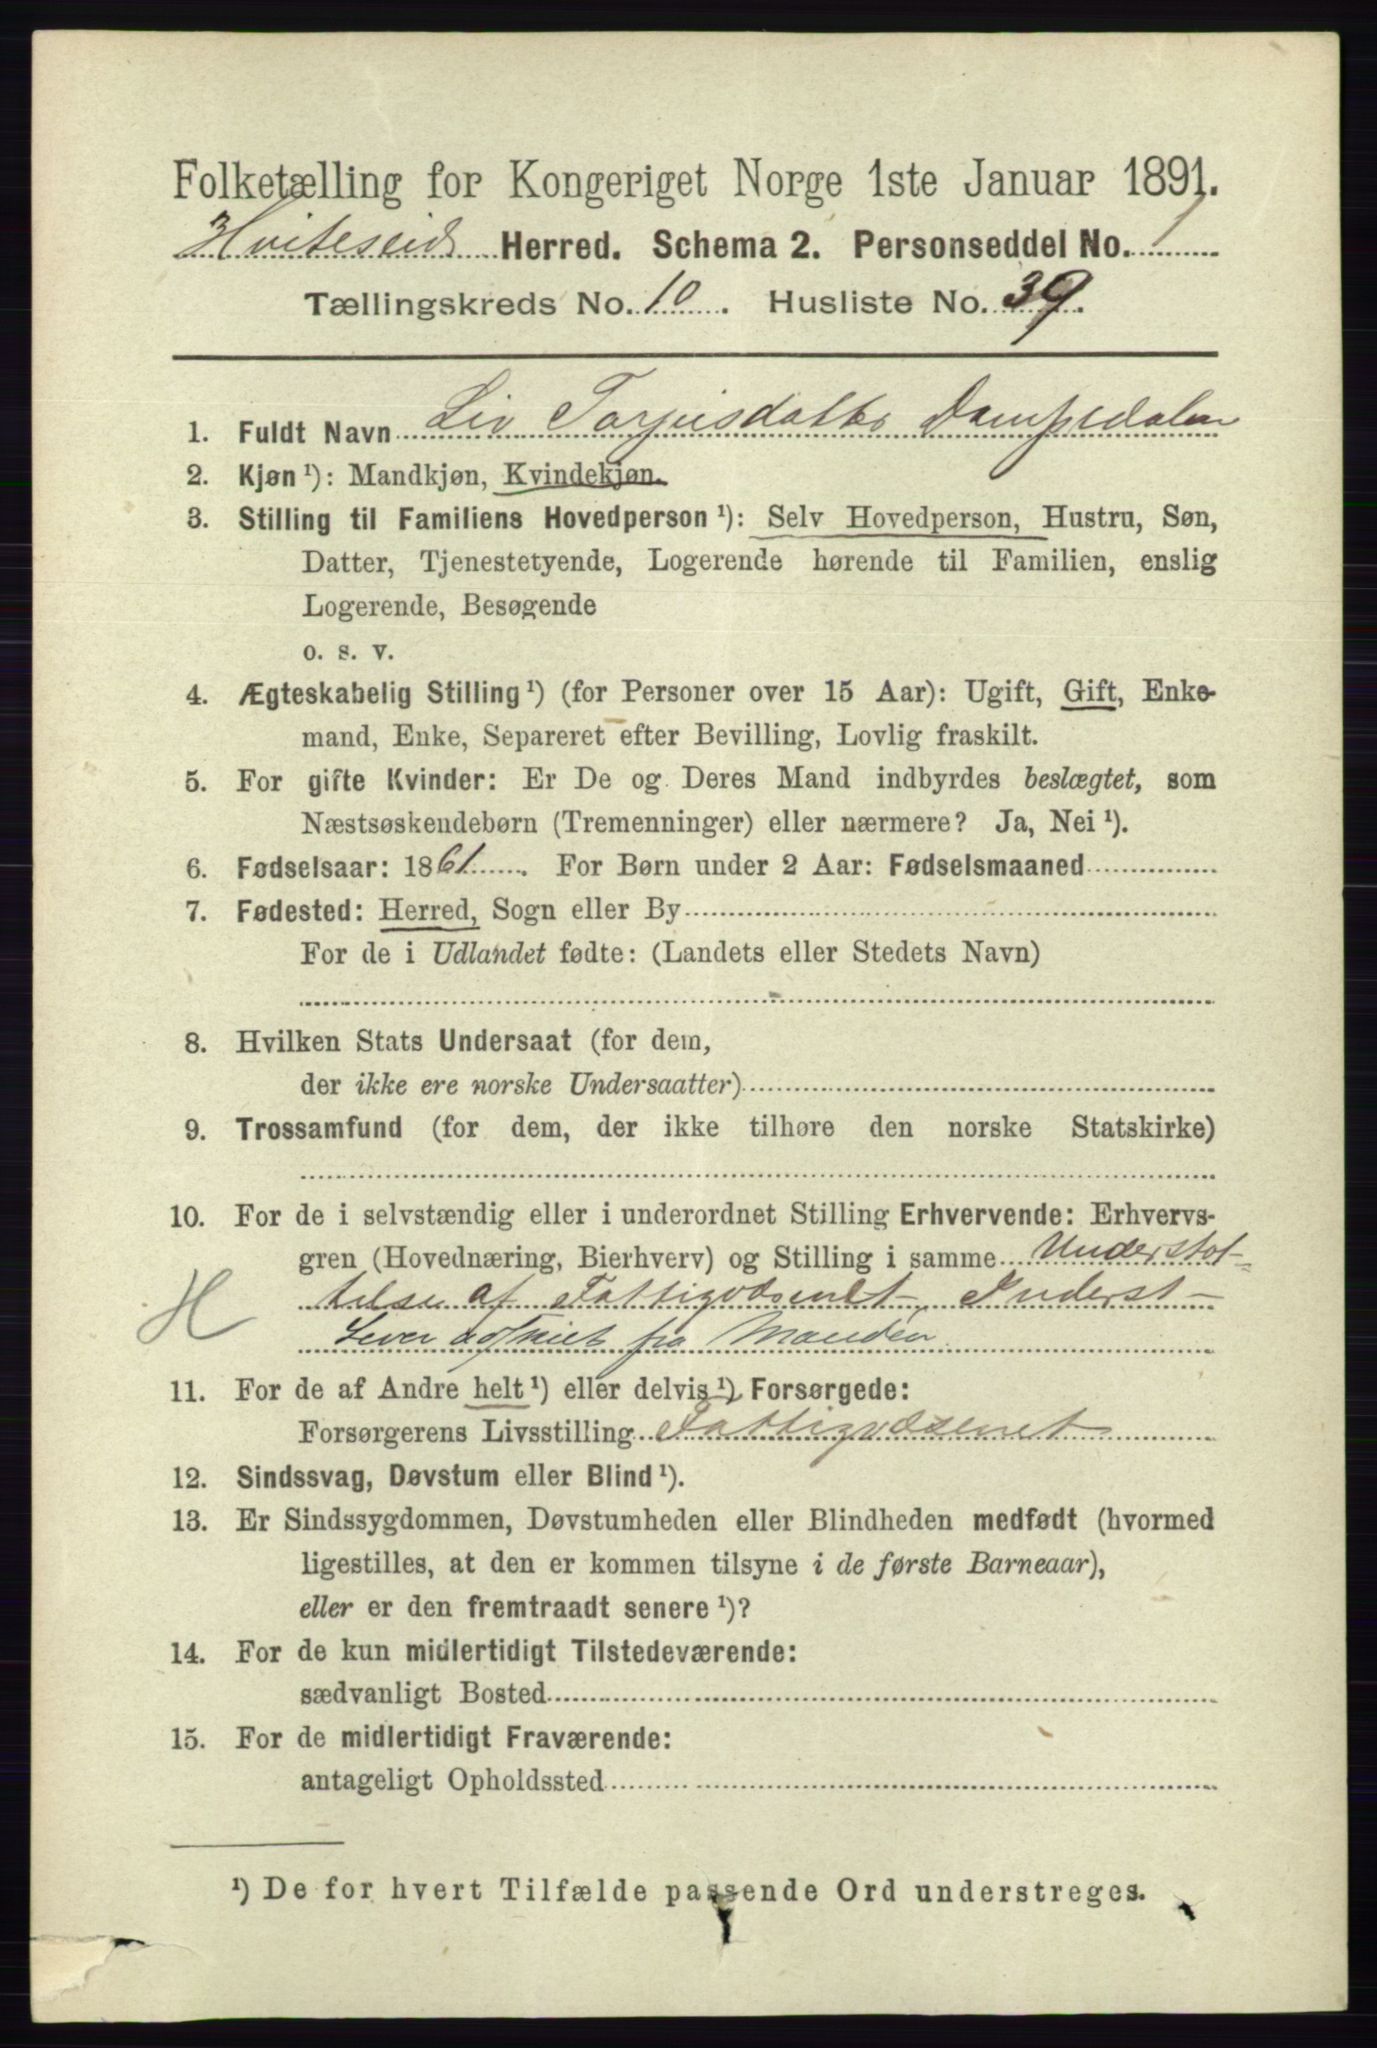 Folketælling for Kongeriget Norge 1ste Januar 1891.
Hviteseid Herred. Schema 2. Personseddel No. 1
Tællingskreds No. 10. Husliste No. 39.
1. Fuldt Navn Liv Torjusdatter
2. Kjøn¹): Mandkjøn, Kvindekjøn.
3. Stilling til Familiens Hovedperson¹): Selv Hovedperson, Hustru, Søn,
Datter, Tjenestetyende, Logerende hørende til Familien, enslig
Logerende, Besøgende
o. s. v.
4. Ægteskabelig Stilling¹) (for Personer over 15 Aar): Ugift, Gift, Enke-
mand, Enke, Separeret efter Bevilling, Lovlig fraskilt.
5. For gifte Kvinder: Er De og Deres Mand indbyrdes beslægtet, som
Næstsøskendebørn (Tremenninger) eller nærmere? Ja, Nei¹).
6. Fødselsaar: 1861. For Børn under 2 Aar: Fødselsmaaned
7. Fødested: Herred, Sogn eller By
For de i Udlandet fødte: (Landets eller Stedets Navn)
8. Hvilken Stats Undersaat (for dem,
der ikke ere norske Undersaatter)
9. Trossamfund (for dem, der ikke tilhøre den norske Statskirke)
10. For de i selvstændig eller i underordnet Stilling Erhvervende: Erhvervs-
gren (Hovednæring, Bierhverv) og Stilling i samme Understøt-
H telse af Fattigvæsenet, Inderst
Lever adskilt fra Manden
11. For de af Andre helt¹) eller delvis¹) Forsørgede:
Forsørgerens Livsstilling Fattigvæsenet
12. Sindssvag, Døvstum eller Blind¹).
13. Er Sindssygdommen, Døvstumheden eller Blindheden medfødt (hvormed
ligestilles, at den er kommen tilsyne i de første Barneaar),
eller er den fremtraadt senere¹)?
14. For de kun midlertidigt Tilstedeværende:
sædvanligt Bosted
15. For de midlertidigt Fraværende:
antageligt Opholdssted
¹) De for hvert Tilfælde passende Ord understreges.